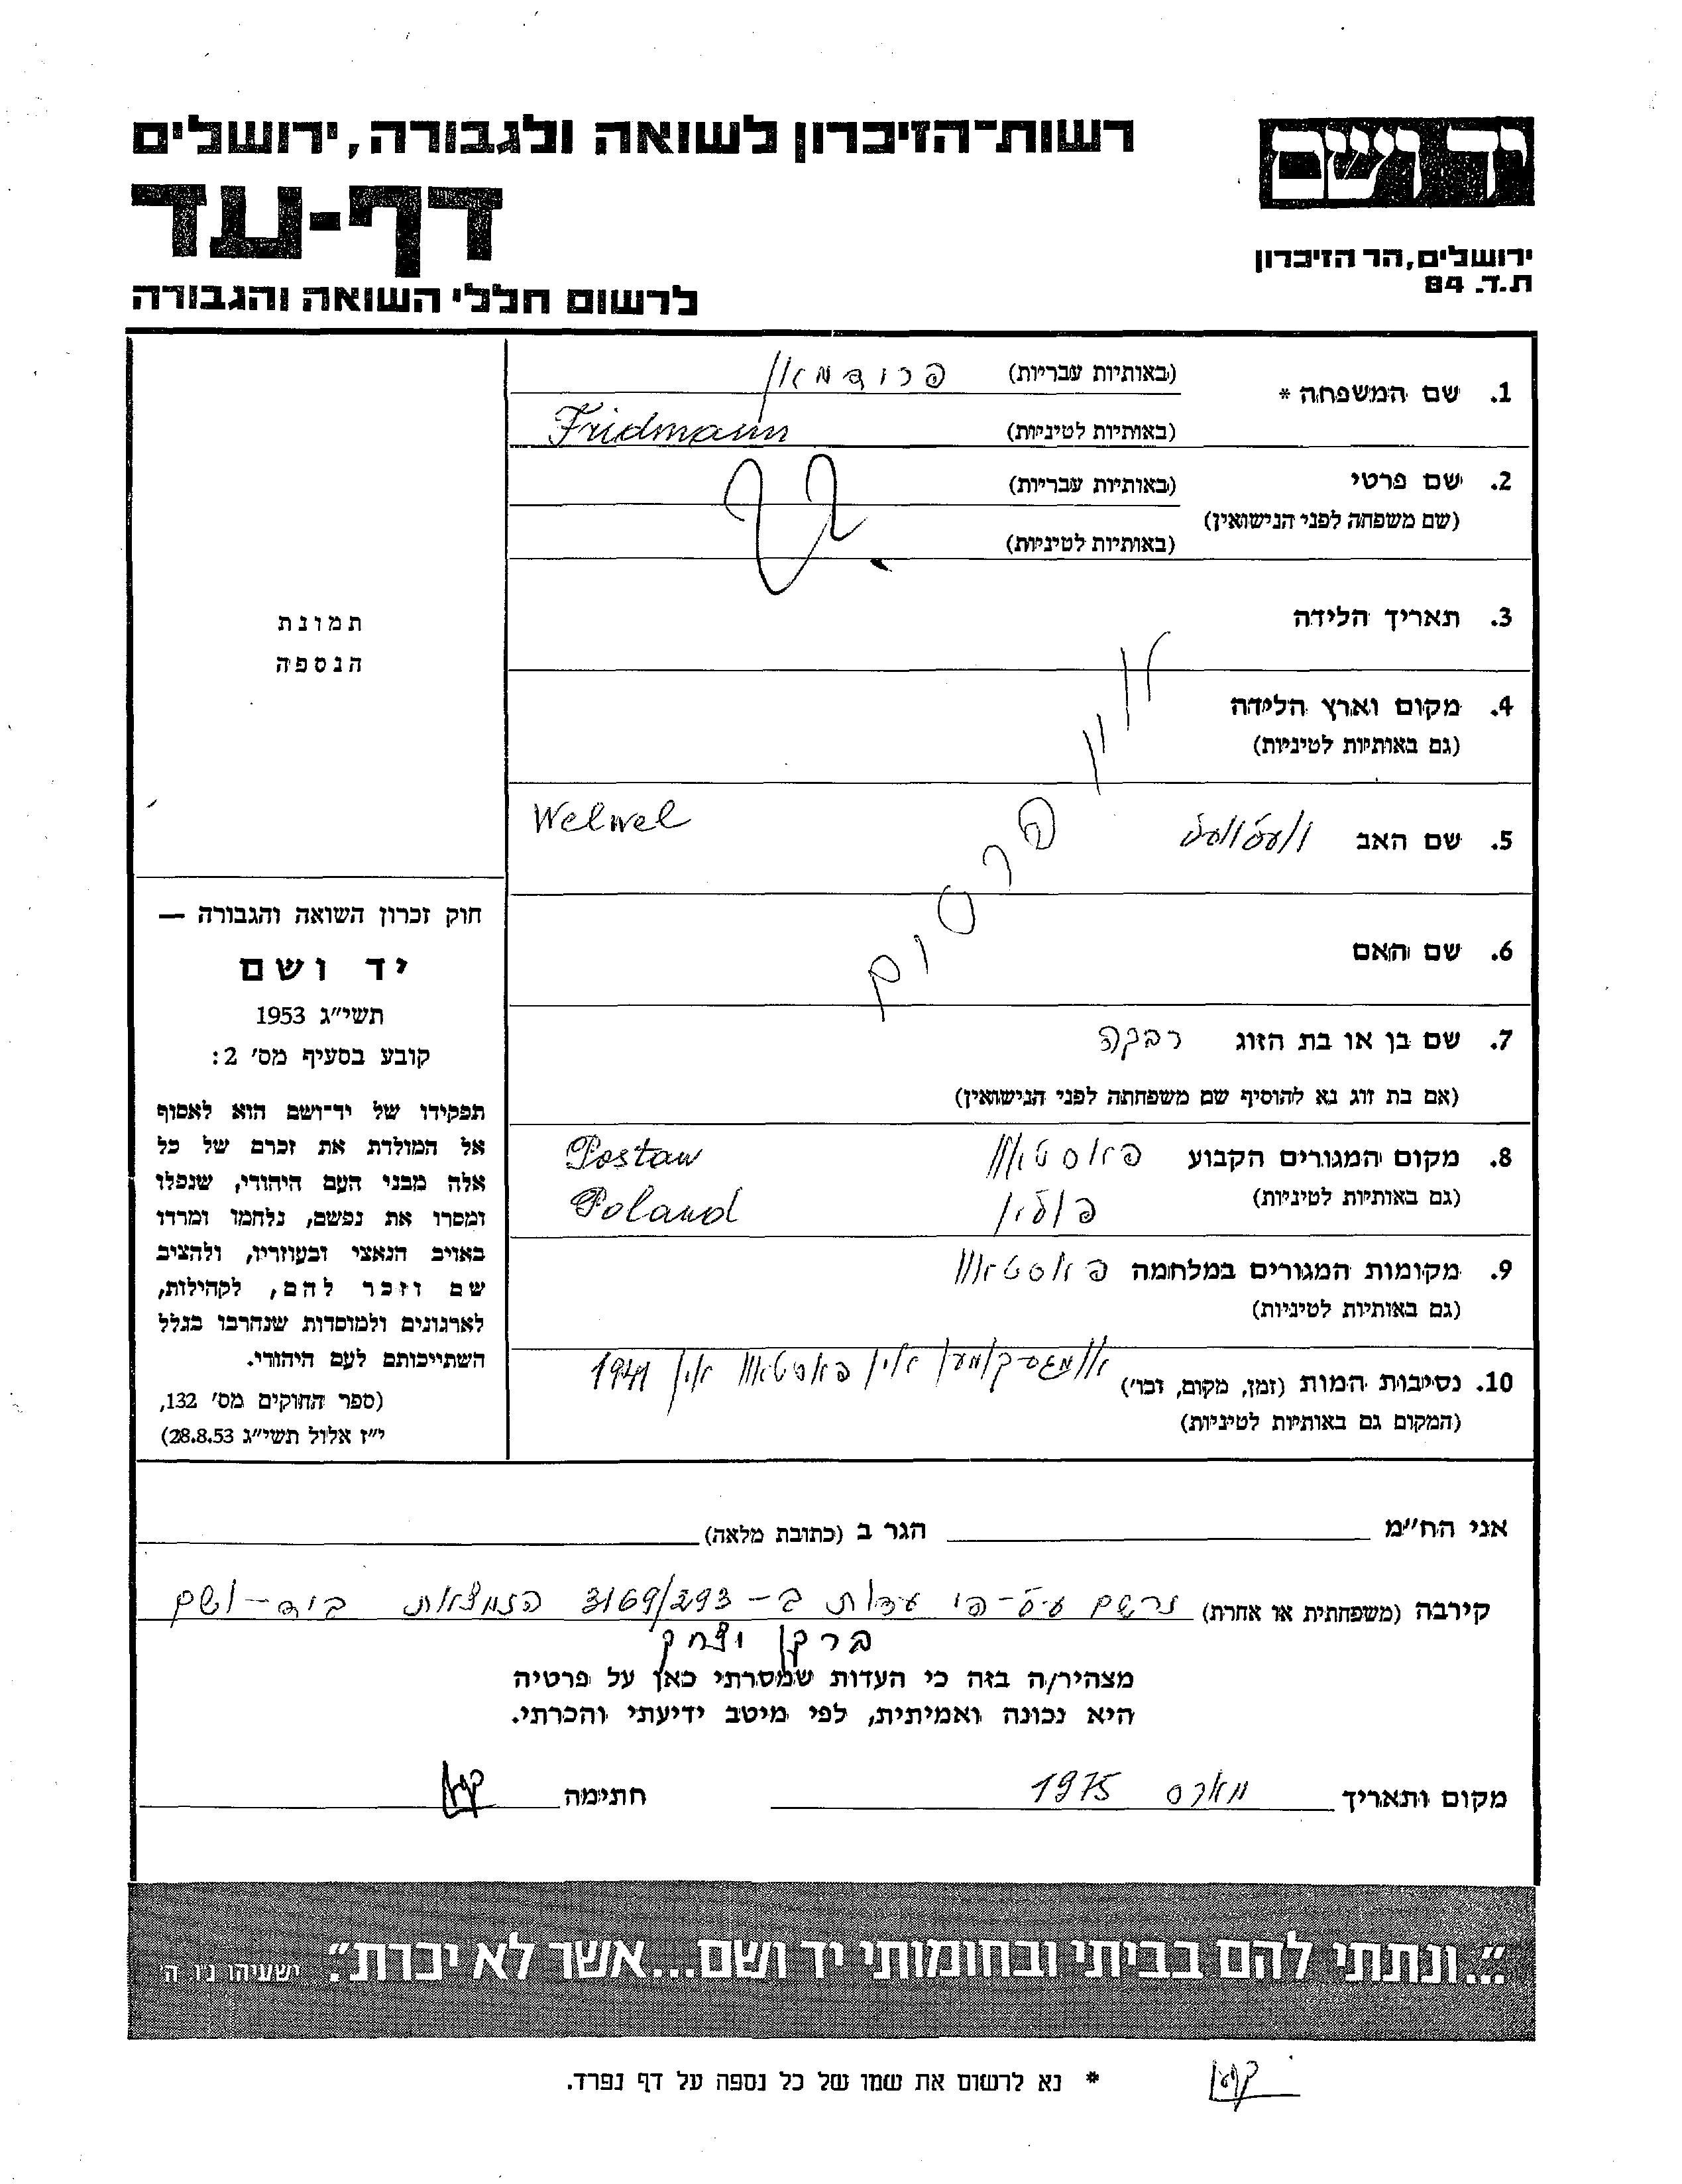 יד ושם
רשות-הזיכרון לשואה ולגבורה, ירושלים
דף-עד
ירושלים, הר הזיכרון
ת.ד. 84
לרשום חללי השואה והגבורה
1. שם המשפחה * (באותיות עבריות) פרידמאן
(באותיות לטיניות) Fridmann
2. שם פרטי (באותיות עבריות)
(שם משפחה לפני הנישואין)
(באותיות לטיניות)
3. תאריך הלידה
4. מקום וארץ הלידה
(גם באותיות לטיניות)
5. שם האב וועלוועל Welwel
6. שם האם
7. שם בן או בת הזוג רבקה
(אם בת זוג נא להוסיף שם משפחתה לפני הנישואין)
8. מקום המגורים הקבוע פאסטאוו Postaw
(גם באותיות לטיניות) פולין Poland
9. מקומות המגורים במלחמה פאסטאוו
(גם באותיות לטיניות)
10. נסיבות המות (זמן, מקום, וכו') אומגעקומען אין פאסטאוו אין 1941
(המקום גם באותיות לטיניות)
תמונת
הנספה
חוק זכרון השואה והגבורה —
יד ושם
תשי"ג 1953
קובע בסעיף מס' 2:
תפקידו של יד-ושם הוא לאסוף
אל המולדת את זכרם של כל
אלה מבני העם היהודי, שנפלו
ומסרו את נפשם, נלחמו ומרדו
באויב הנאצי ובעוזריו, ולהציב
שם וזכר להם, לקהילות,
לארגונים ולמוסדות שנחרבו בגלל
השתייכותם לעם היהודי.
(ספר החוקים מס' 132,
י"ז אלול תשי"ג 28.8.53)
אני הח"מ הגר ב (כתובת מלאה)
קירבה (משפחתית או אחרת) נרשם על-פי עדות ב- 3169/293 הנמצאת ביד-ושם
ברקן יצחק
מצהיר/ה בזה כי העדות שמסרתי כאן על פרטיה
היא נכונה ואמיתית, לפי מיטב ידיעתי והכרתי.
מקום ותאריך מארס 1975 חתימה
"...ונתתי להם בביתי ובחומותי יד ושם...אשר לא יכרת". ישעיהו נ"ו ה'
* נא לרשום את שמו של כל נספה על דף נפרד.